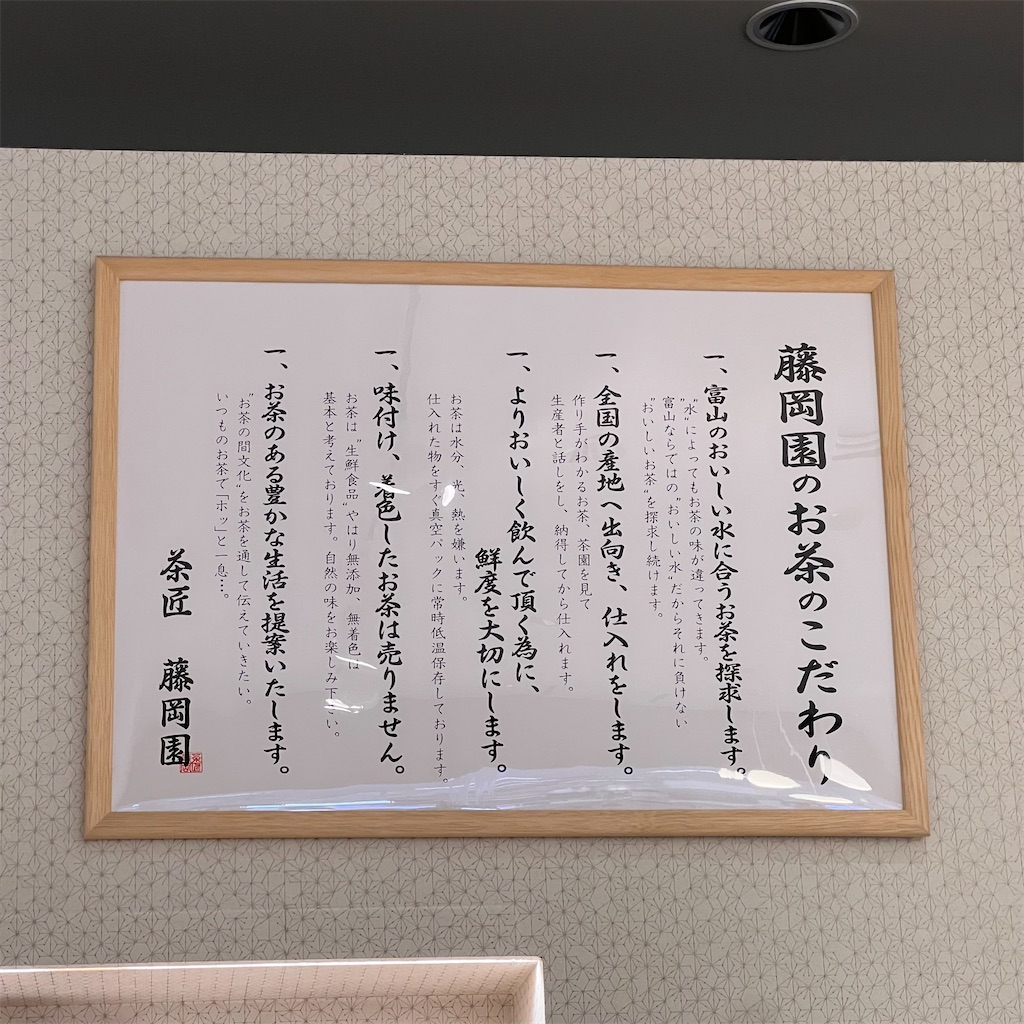 藤岡園のお茶のこだわり
一、富山のおいしい水に合うお茶を探求します。
“水”によってもお茶の味が違ってきます。
富山ならではの“おいしい水”だからそれに負けない
“おいしいお茶”を探求し続けます。
一、全国の産地へ出向き、仕入れをします。
作り手がわかるお茶、茶園を見て
生産者と話しをし、納得してから仕入れます。
一、よりおいしく飲んで頂く為に、
鮮度を大切にします。
お茶は水分、光、熱を嫌います。
仕入れた物をすぐ真空パックに常時低温保存しております。
一、味付け、着色したお茶は売りません。
お茶は“生鮮食品”やはり無添加、無着色は
基本と考えております。自然の味をお楽しみ下さい。
一、お茶のある豊かな生活を提案いたします。
“お茶の間文化”をお茶を通して伝えていきたい。
いつものお茶で「ホッ」と一息…。
茶匠 藤岡園